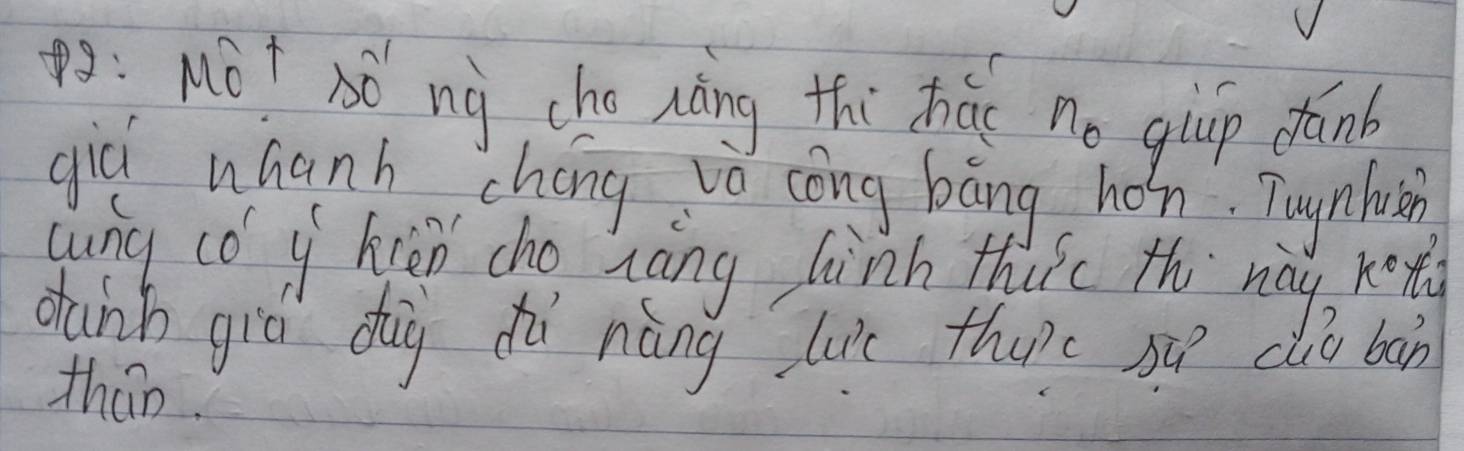 Đ2: Một số ng` cho rằng thi trắc no giúp đánh
giá nhanh chóng và công bằng hơn. Tuy nhiên
cũng có ý kiến cho rằng hình thức thi này ko thể
đánh giá đầy đủ năng lực thực sự của bản
thân.